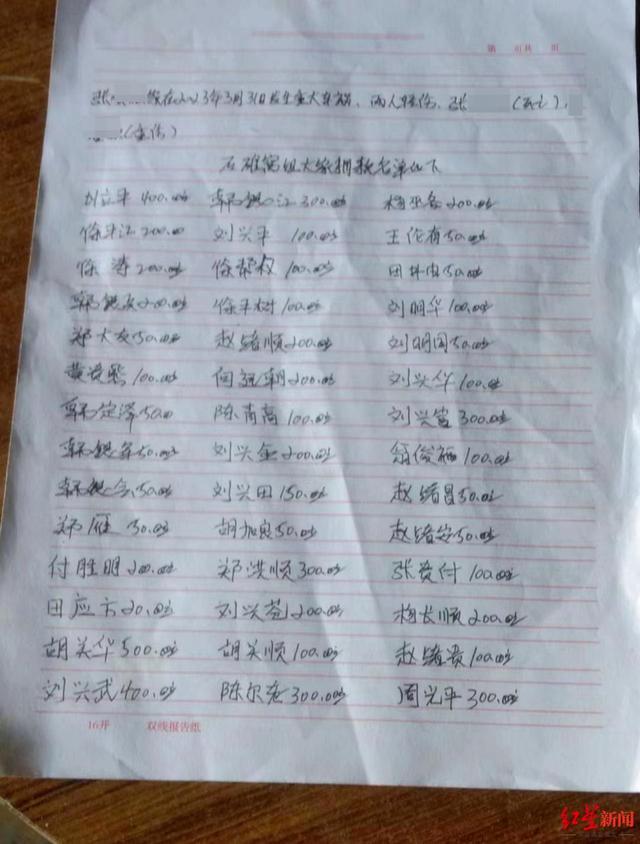 第 页共 页
张 家在2023年3月31日发生重大车祸，两人轻伤，张 （死亡），
（重伤）
石雄窝组大家捐款名单如下
刘立平 400.00 韩银江 300.00 梅 200.00
徐平江 200.00 刘兴平 100.00 王伦有 50.00
徐涛 200.00 徐帮权 100.00 田井 50.00
韩银友 200.00 徐平树 100.00 刘明华 100.00
郑大友 50.00 赵绪顺 200.00 刘明国 50.00
黄 100.00 向 朝 200.00 刘兴华 100.00
韩定泽 50.00 陈 100.00 刘兴 300.00
韩银 50.00 刘兴金 200.00 俊 100.00
韩 50.00 刘兴田 150.00 赵绪昌 50.00
郑雁 50.00 胡加良 50.00 赵绪安 50.00
付胜明 200.00 郑洪顺 300.00 张贵付 100.00
田应方 20.00 刘兴苍 200.00 梅长顺 200.00
胡关华 500.00 胡关顺 100.00 赵绪贵 100.00
刘兴武 400.00 陈尔 300.00 周光平 300.00
16开 双线报告纸
红星新闻